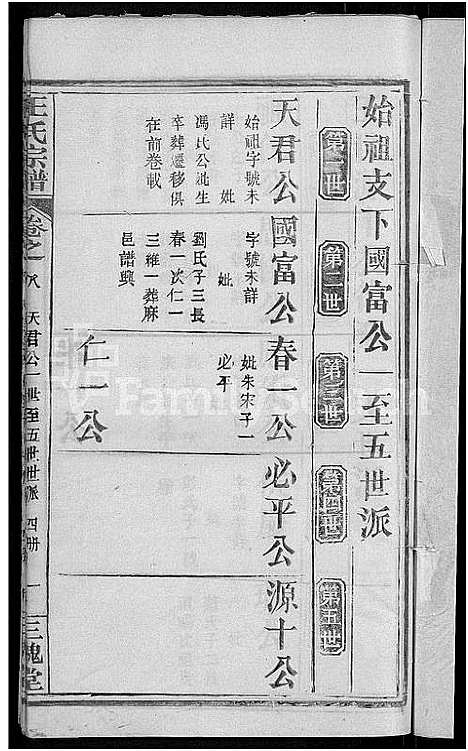 始祖支下國富公一至五世派
第一世
第二世
第三世
第四世
第五世
天君公
始祖字號未
詳 妣
馮氏公妣生
卒葬遷移俱
在前卷載
國富公
字號未詳
妣
劉氏子三長
春一次仁一
三維一葬麻
邑譜興
春一公
妣朱宋子一
必平
必平公
源十公
仁一公
王氏宗譜
卷之八
天君公一世至五世世派
四册
一
三槐堂
FamilySearch